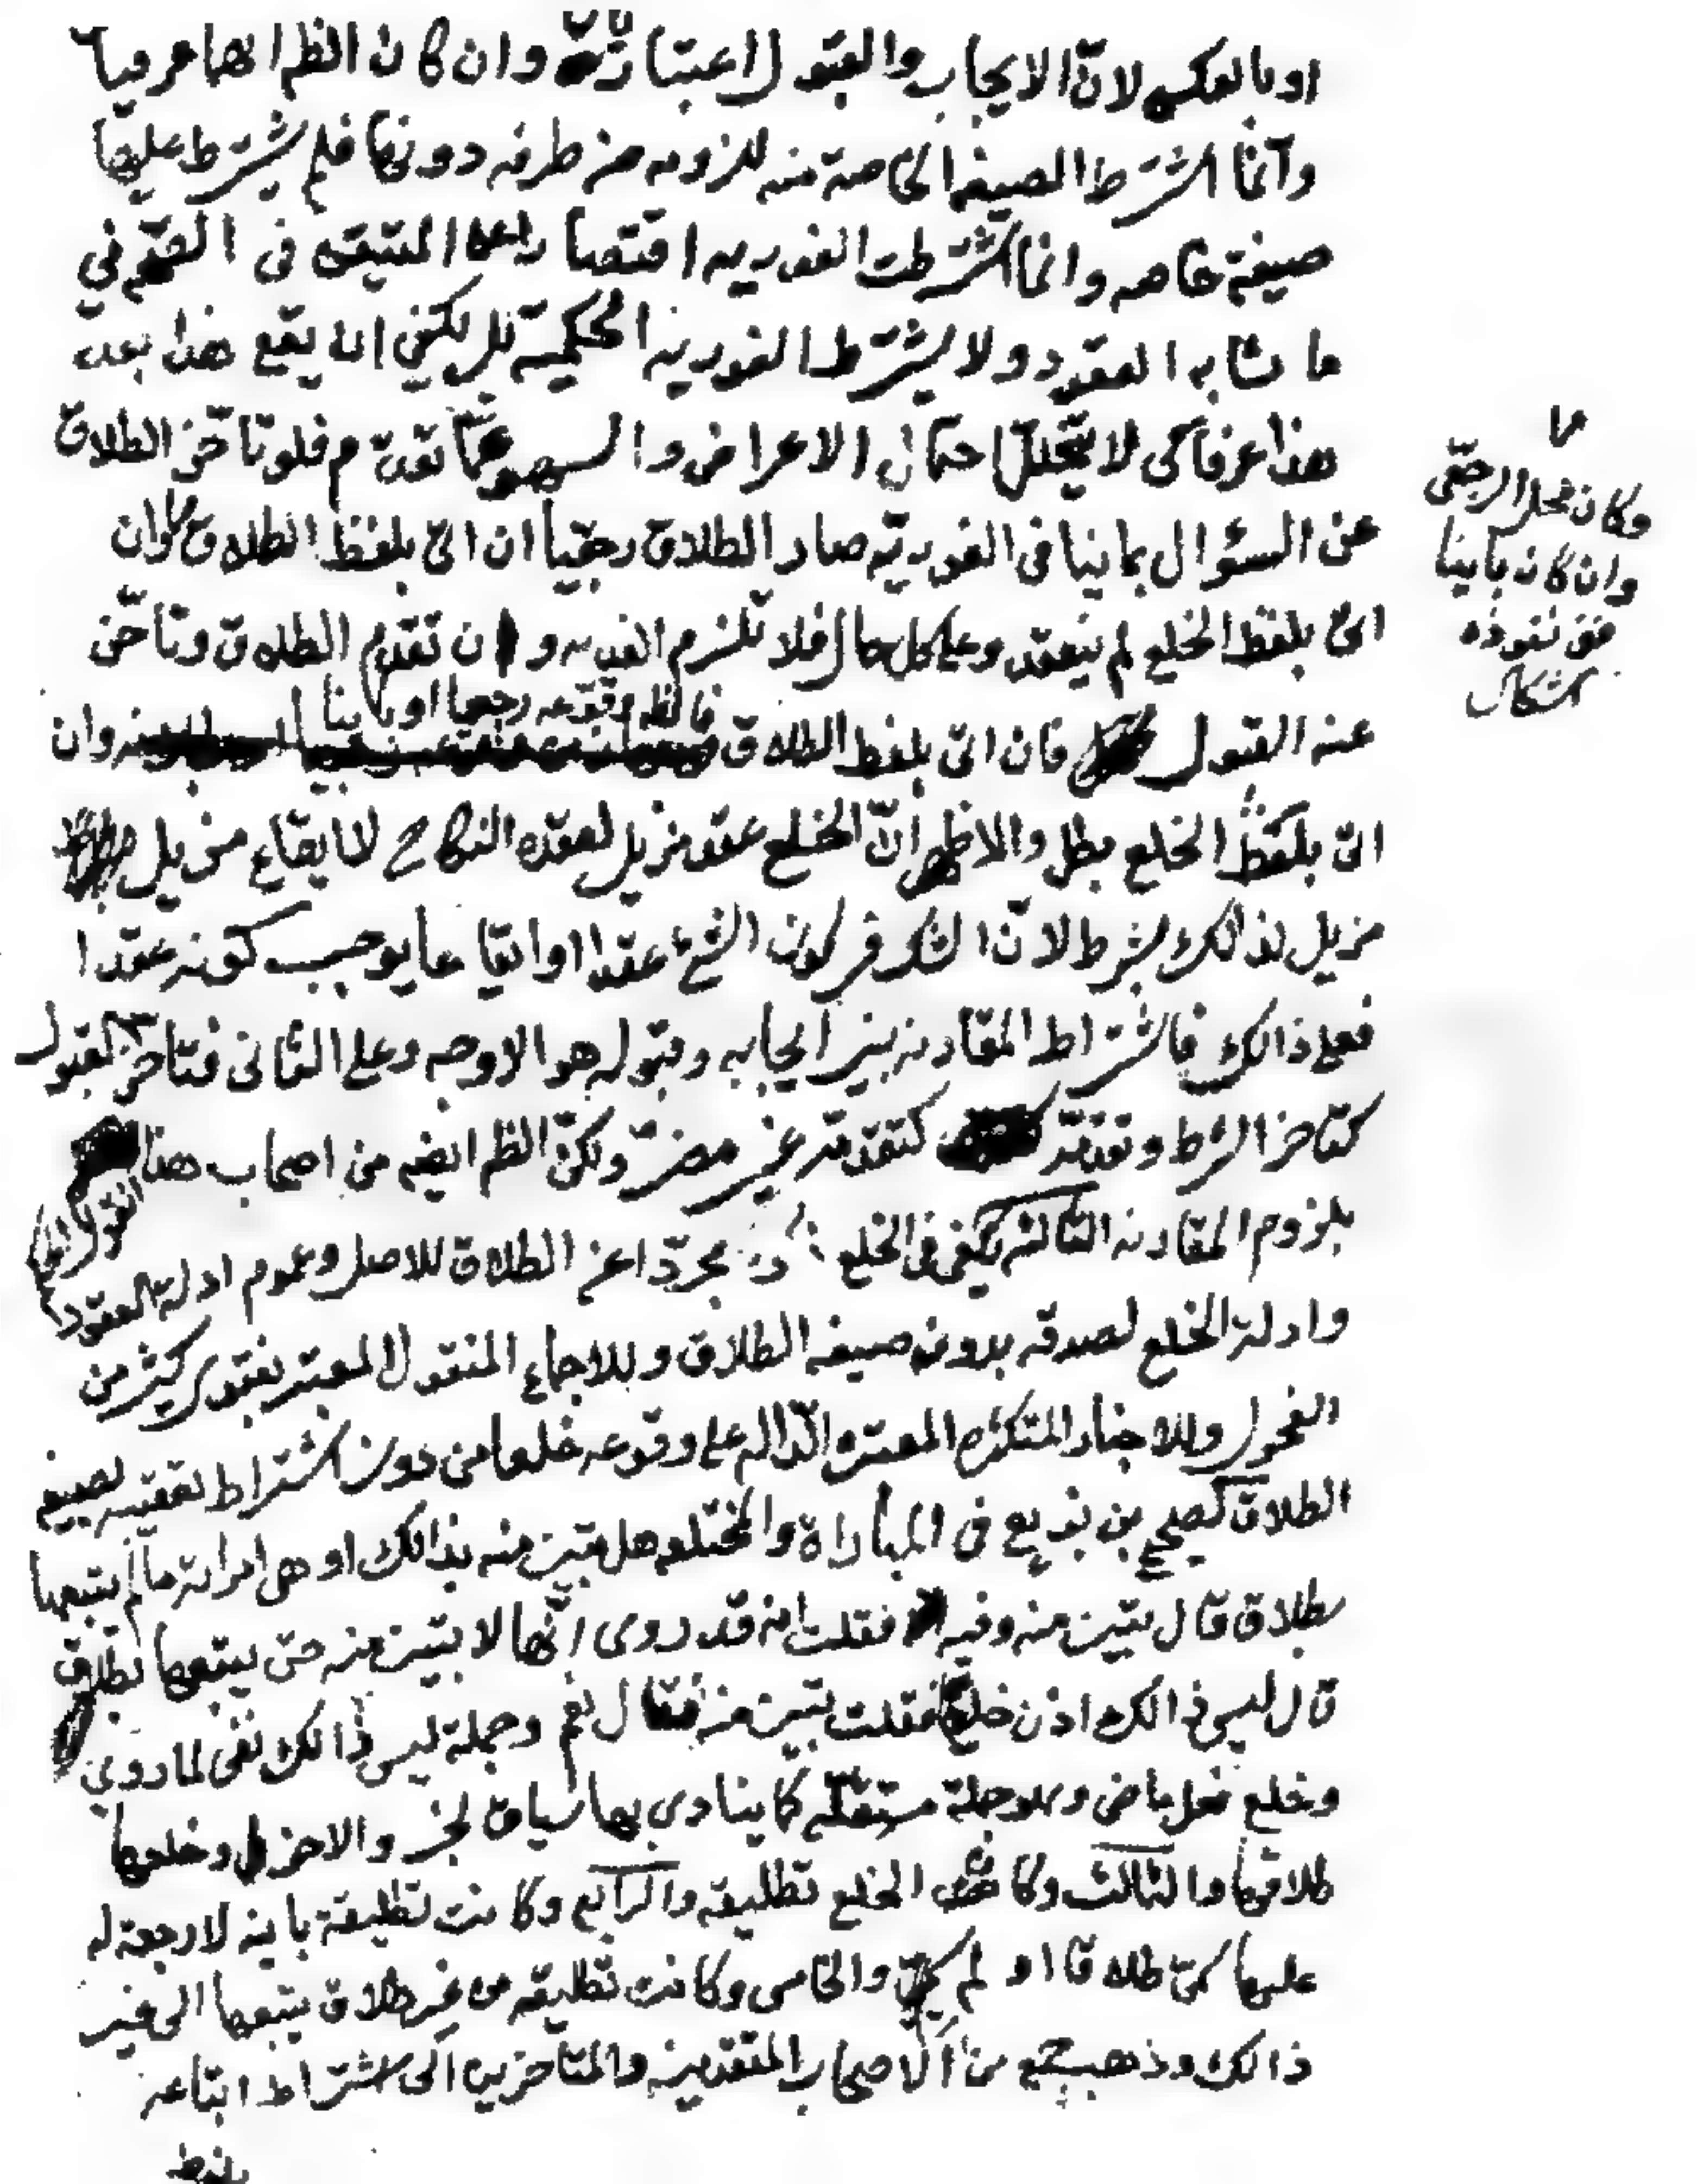 او بالعكس لانّ الايجاب والقبول اعتباريّة وان كان الظم انهما عرفيا
وانّما اشترط الصيغة الخاصة منه للزومه من طرفه دونها فلم يشترط عليها
صيغة خاصه وانما اشترطت الفوريه اقتصارا على المتيقن في
ما شابه العقود ولا يشترط الفوريه الحكمية بل يكفي ان يقع هذا بعد
هذا عرفا كى لا يتخلل احتمال الاعراض والسهو عمّا تقدّم فلو تاخّر الطلاق
عن السؤال بما ينافى الفوريّه صار الطلاق رجعيا ان اتى بلفظ الطلاق وان
اتى بلفظ الخلع لم ينعقد وعلى كل حال فلا تلزم الفديه وان تقدم الطلاق وتاخّر
عنه القبول فان اتى بلفظ الطلاق فالظم وقوعه رجعيا او باينا وان
اتى بلفظ الخلع بطل والاظهر انّ الخلع عقد مزيل لعقده النكاح لا ايقاع مزيل
مزيل لذالك بشرط لانّ الشك في كون الشئ عقدا او ايقاعا يوجب كونه عقدا
فعلى ذالك فاشتراط المقارنه بين ايجابه وقبوله هو الاوجه وعلى الثانى فتاخر القبول
كتاخر الشرط وتقدمّه كتقدمّه غير مضرّ ولكنّ الظم ايضه من اصحاب هذا
القول
بلزوم المقارنه الثالث يكفى فى الخلع مجرّدا عن الطلاق للاصل وعموم ادلة العقود
وادلة الخلع لصدقه بدون صيغه الطلاق وللاجماع المنقول المعتبر بفتوى كثير من
الفحول وللاخبار المتكثره المعتبره الدّاله على وقوعه خلعا من دون اشتراط تعقيبه بصيغه
الطلاق كصحيح بن بزيع فى المباراة والمختلعه هل تبين منه بذالك او هى امراته ما لم يتبعها
بطلاق قال تبين منه وفيه فقلت انه قد روى انّها لا تبين منه حتى يتبعها بطلاق
قال ليس ذالك اذن خلع فقلت تبين منه فقال نعم وجملة ليس ذالك نفى لما روي
وخلع فعل ماضى وهو جملة مستقلّه كما ينادي بها سياق الخبر والاخر وخلعها
طلاقها والثالث وكان الخلع تطليقه والرابع وكانت تطليقة باينه لا رجعة له
عليها سمّى طلاقا او لم يسمّ والخامس وكانت تطليقه من غير طلاق يتبعها الى غير
ذالك وذهب جمع من الاصحاب المتقدمين والمتاخرين الى اشتراط اتباعه
بلفظ
وكان محل الرجعّى
وان كان باينا
ففى نفوذه
اشكال